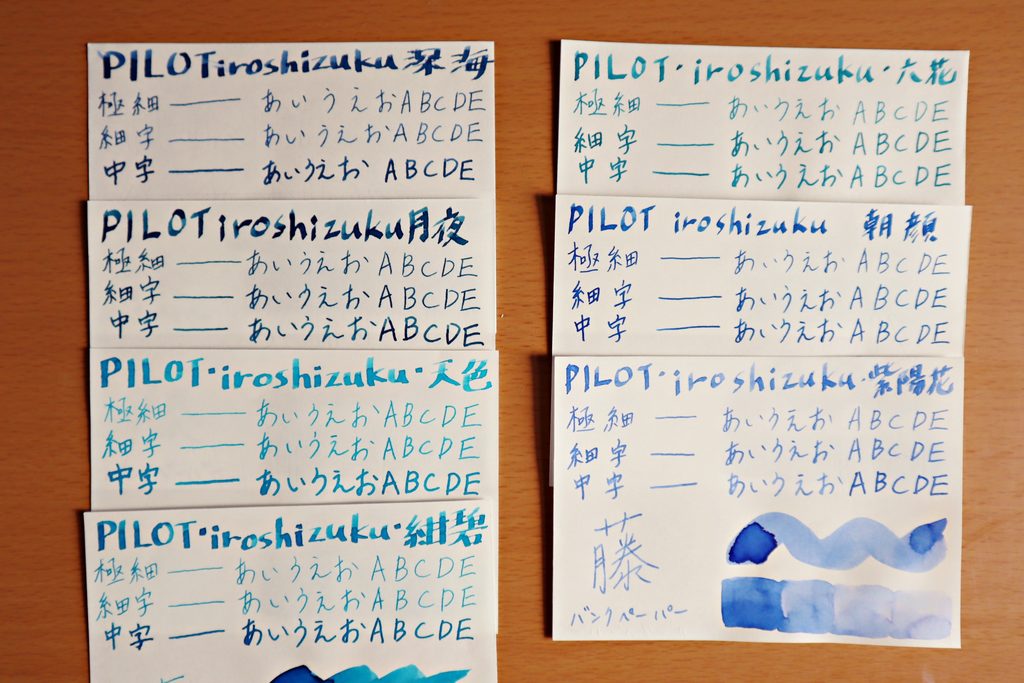 PILOT iroshizuku 深海
極細 ― あいうえお ABCDE
細字 ― あいうえお ABCDE
中字 ― あいうえお ABCDE
PILOT iroshizuku 月夜
極細 ― あいうえお ABCDE
細字 ― あいうえお ABCDE
中字 ― あいうえお ABCDE
PILOT・iroshizuku・天色
極細 ― あいうえお ABCDE
細字 ― あいうえお ABCDE
中字 ― あいうえお ABCDE
PILOT・iroshizuku・紺碧
極細 ― あいうえお ABCDE
細字 ― あいうえお ABCDE
中字 ― あいうえお ABCDE
PILOT・iroshizuku・六花
極細 ― あいうえお ABCDE
細字 ― あいうえお ABCDE
中字 ― あいうえお ABCDE
PILOT iroshizuku 朝顔
極細 ― あいうえお ABCDE
細字 ― あいうえお ABCDE
中字 ― あいうえお ABCDE
PILOT・iroshizuku・紫陽花
極細 ― あいうえお ABCDE
細字 ― あいうえお ABCDE
中字 ― あいうえお ABCDE
藤
バンクペーパー